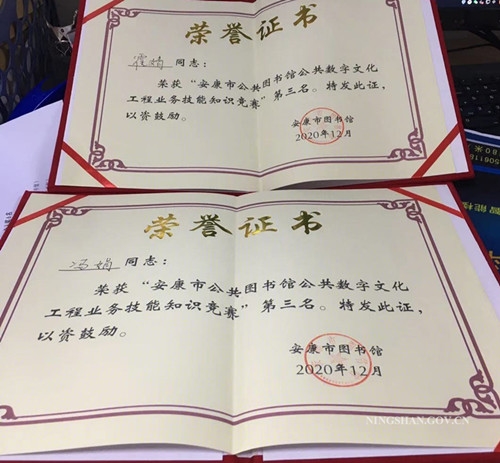 荣誉证书
霞娟 同志：
荣获“安康市公共图书馆公共数字文化
工程业务技能知识竞赛”第三名。特发此证，
以资鼓励。
安康市图书馆
2020年12月
荣誉证书
冯娟 同志：
荣获“安康市公共图书馆公共数字文化
工程业务技能知识竞赛”第三名。特发此证，
以资鼓励。
安康市图书馆
2020年12月
NINGSHAN.GOV.CN